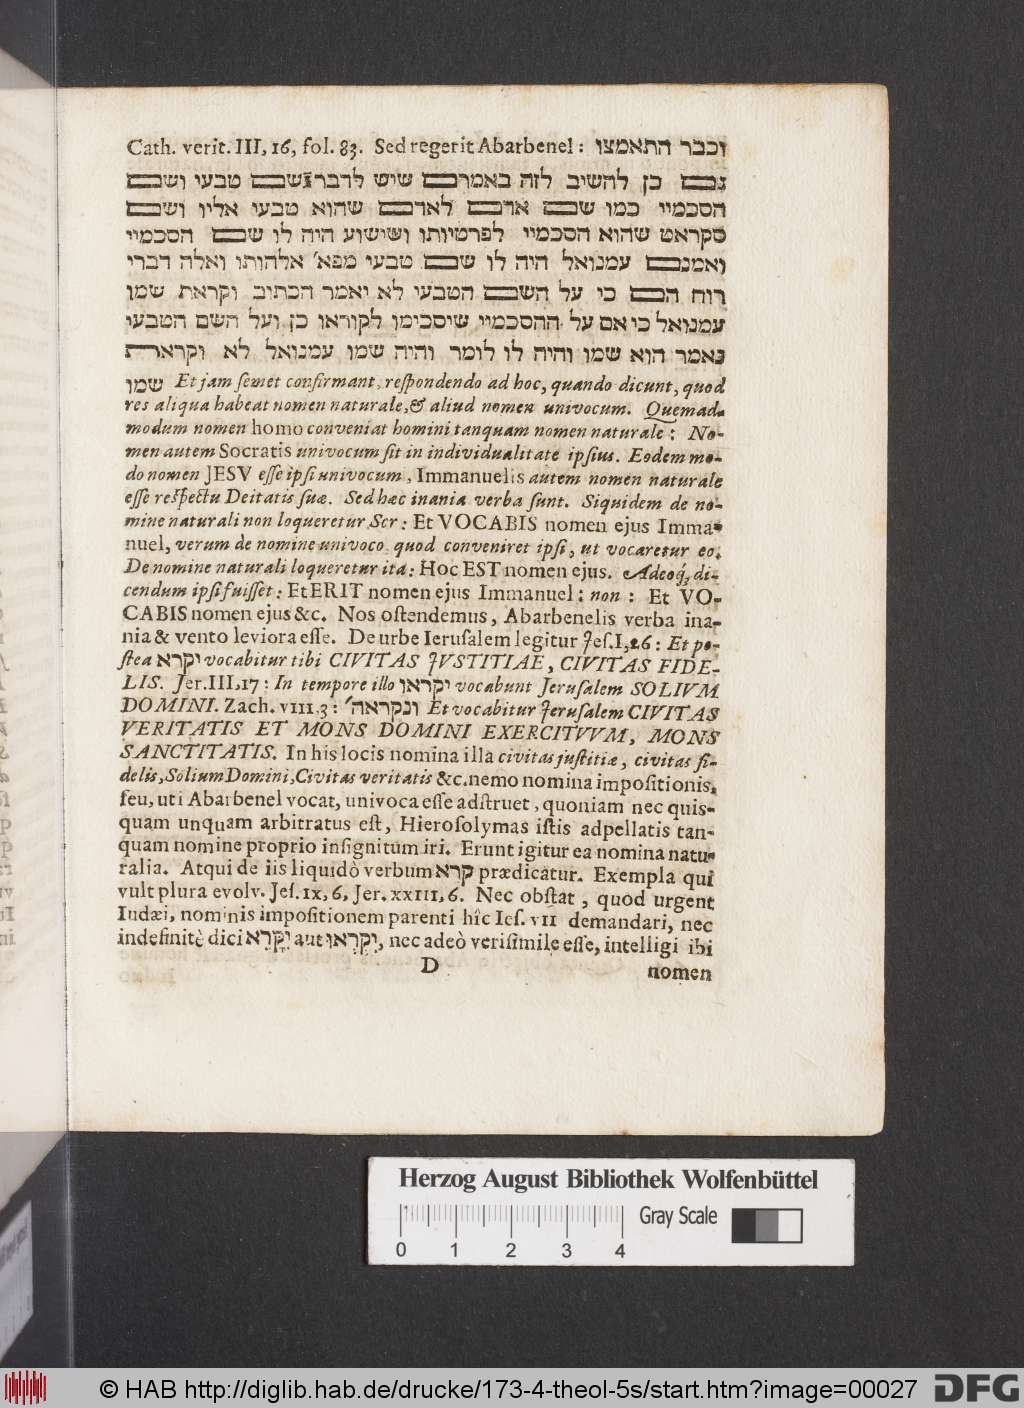 Cath. verit. III, 16, fol. 83. Sed regerit Abarbenel: וכבר התאמצו
גם כן להשיב לזה באמרם שיש לדבר שם טבעי ושם
הסכמיי כמו שם אדם לאדם שהוא טבעי אליו ושם
סקראט שהוא הסכמיי לפרטיותו ושישוע היה לו שם הסכמיי
ואמנם עמנואל היה לו שם טבעי מפא׳ אלהותו ואלה דברי
רוח הם כי על השם הטבעי לא יאמר הכתוב וקראת שמו
עמנואל כי אם על ההסכמיי שיסכימו לקוראו כן ועל השם הטבעי
נאמר הוא שמו והיה לו לומר והיה שמו עמנואל לא וקראת
שמו Et jam semet confirmant, respondendo ad hoc, quando dicunt, quod
res aliqua habeat nomen naturale, & aliud nomen univocum. Quemad-
modum nomen homo conveniat homini tanquam nomen naturale: No-
men autem Socratis univocum sit in individualitate ipsius. Eodem mo-
do nomen JESV esse ipsi univocum, Immanuelis autem nomen naturale
esse respectu Deitatis suæ. Sed hæc inania verba sunt. Siquidem de no-
mine naturali non loqueretur Scr: Et VOCABIS nomen ejus Imma-
nuel, verum de nomine univoco quod conveniret ipsi, ut vocaretur eo.
De nomine naturali loqueretur ita: Hoc EST nomen ejus. Adeoq́; di-
cendum ipsi fuisset: Et ERIT nomen ejus Immanuel: non: Et VO-
CABIS nomen ejus &c. Nos ostendemus, Abarbenelis verba ina-
nia & vento leviora esse. De urbe Ierusalem legitur Jes. I, 26: Et po-
stea יקרא vocabitur tibi CIVITAS JVSTITIAE, CIVITAS FIDE-
LIS. Jer. III, 17: In tempore illo יקראו vocabunt Jerusalem SOLIVM
DOMINI. Zach. VIII, 3: ונקראה׳ Et vocabitur Jerusalem CIVITAS
VERITATIS ET MONS DOMINI EXERCITVVM, MONS
SANCTITATIS. In his locis nomina illa civitas justitiæ, civitas fi-
delis, Solium Domini, Civitas veritatis &c. nemo nomina impositionis,
seu, uti Abarbenel vocat, univoca esse adstruet, quoniam nec quis-
quam unquam arbitratus est, Hierosolymas istis adpellatis tan-
quam nomine proprio insignitum iri. Erunt igitur ea nomina natu-
ralia. Atqui de iis liquidò verbum קרא prædicatur. Exempla qui
vult plura evolv. Jes. IX, 6, Jer. XXIII, 6. Nec obstat, quod urgent
Iudæi, nominis impositionem parenti hîc Ies. VII demandari, nec
indefinitè dici יִקָּרֵא aut יִקְרְאוּ, nec adeò verisimile esse, intelligi ibi
D
nomen
Herzog August Bibliothek Wolfenbüttel
0 1 2 3 4
Gray Scale
© HAB http://diglib.hab.de/drucke/173-4-theol-5s/start.htm?image=00027
DFG